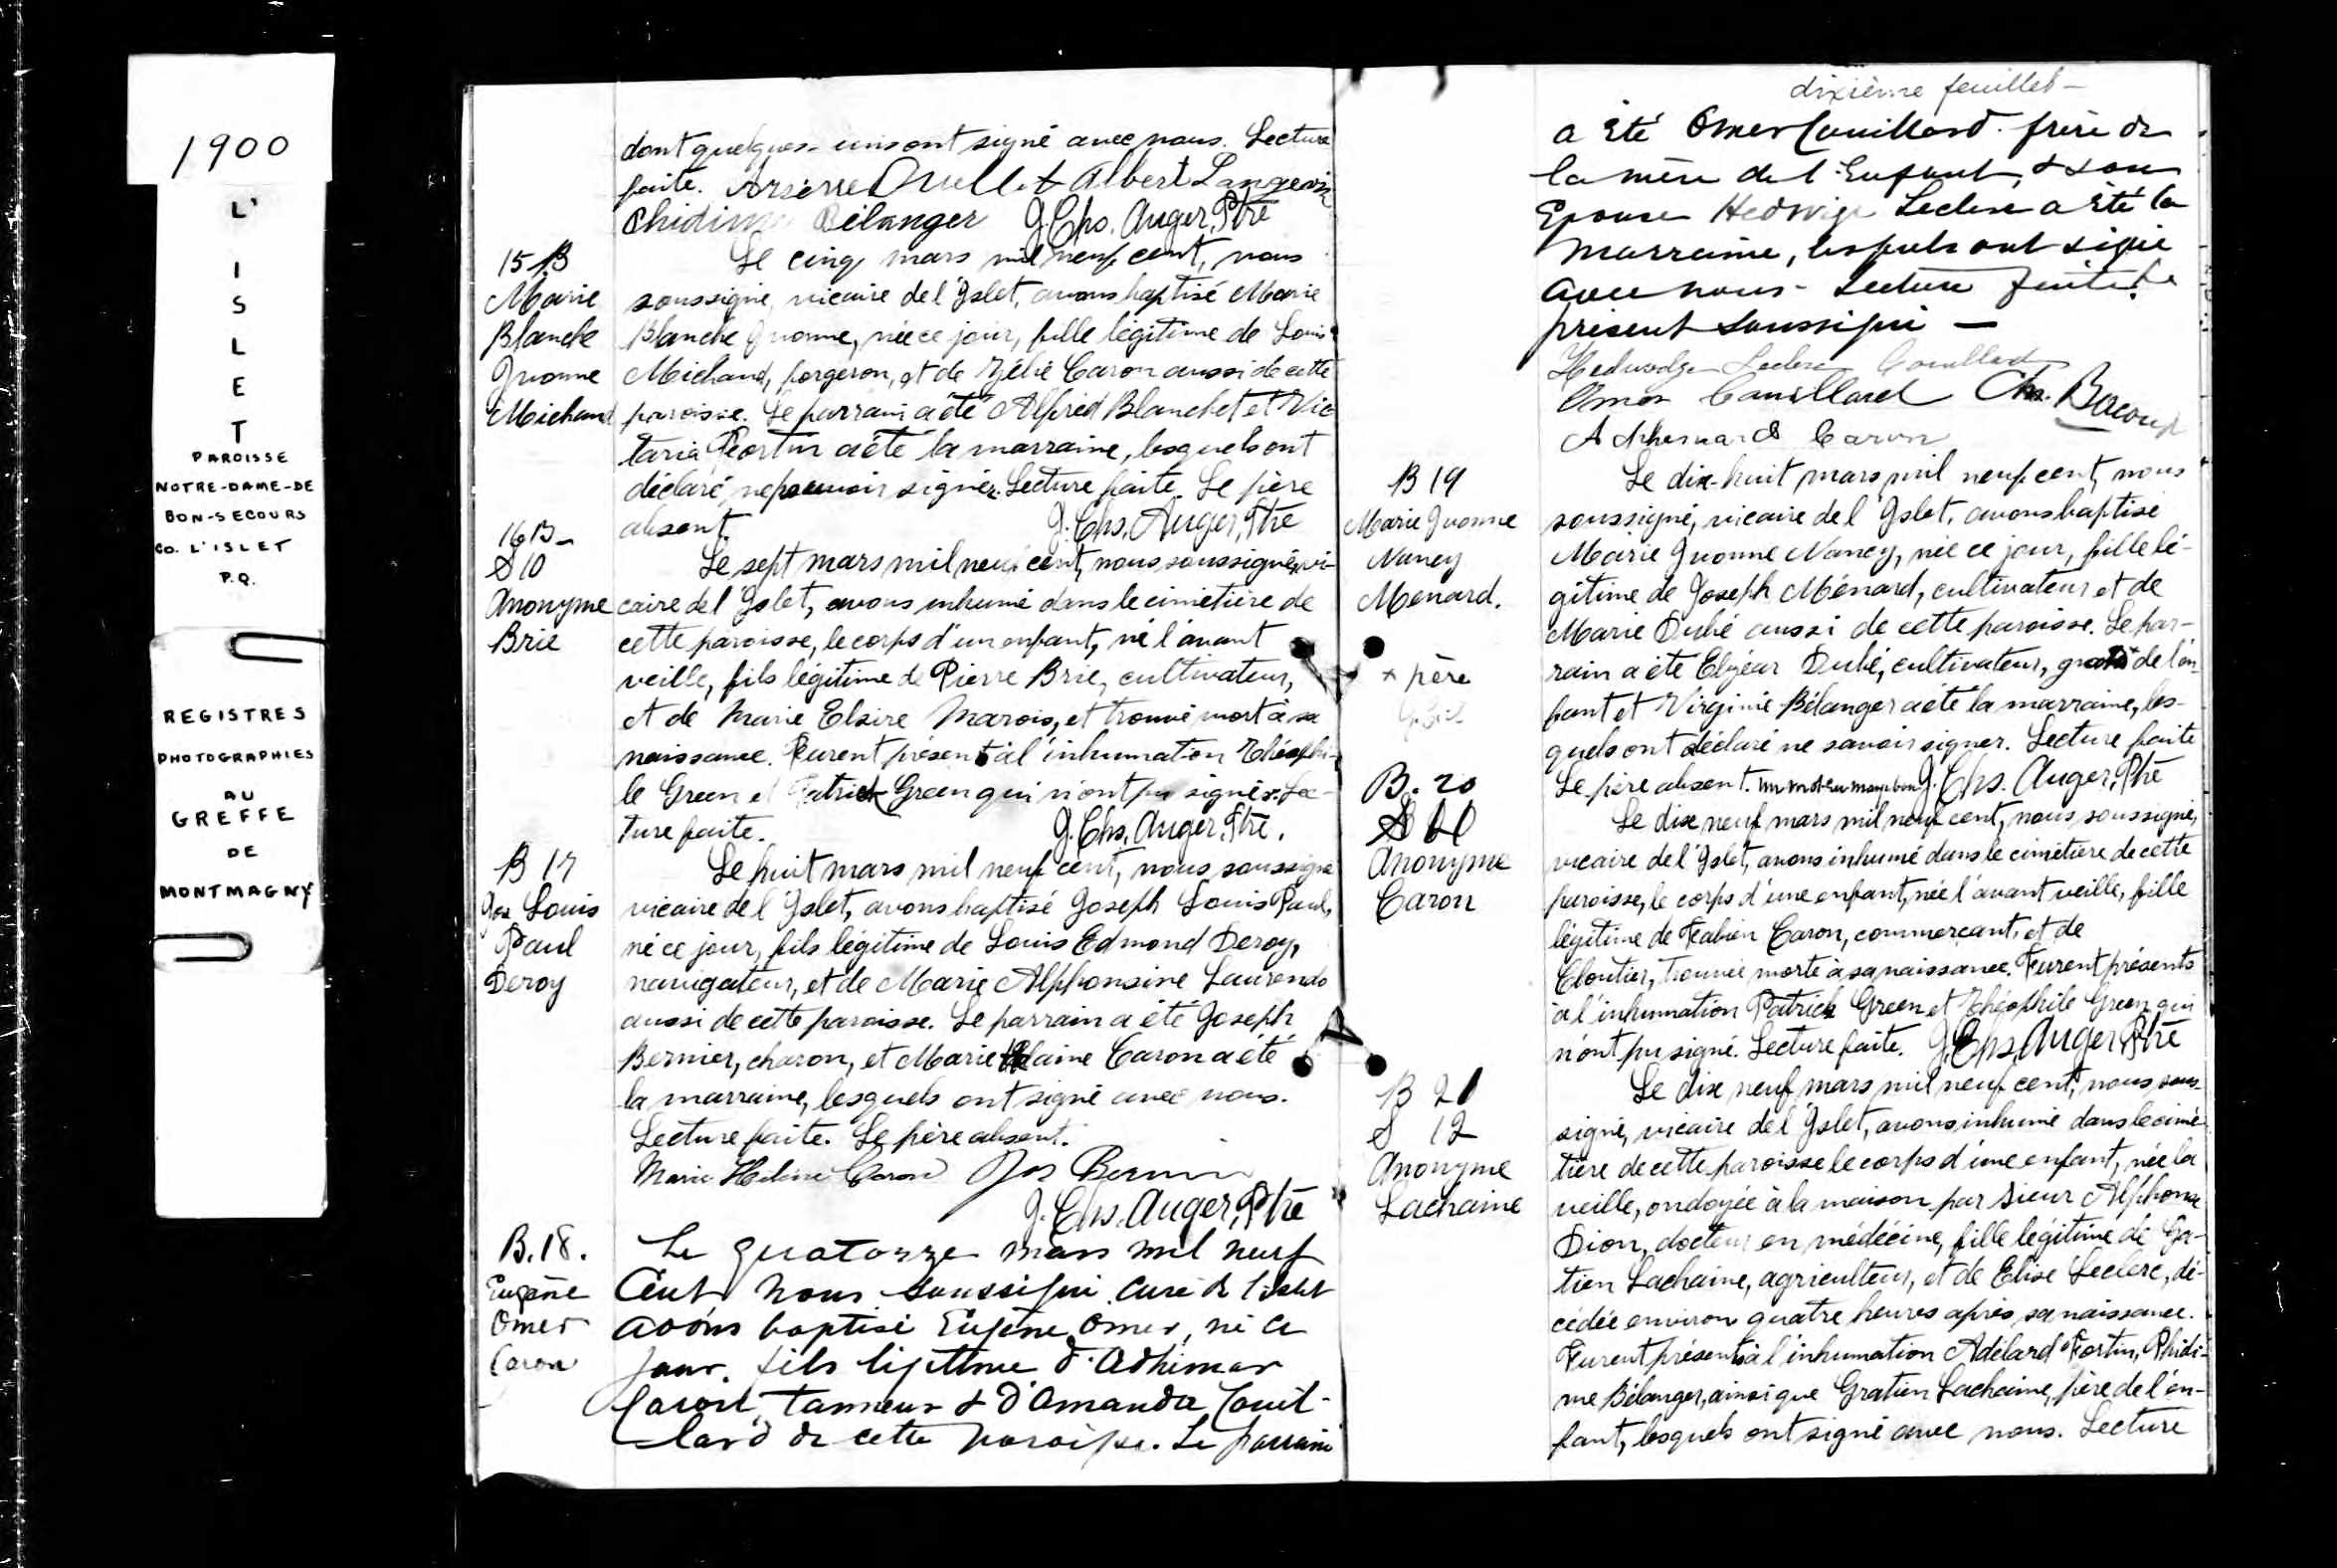 1900
L'
I
S
L
E
T
PAROISSE
NOTRE-DAME-DE
BON-SECOURS
CO. L'ISLET
P.Q.
REGISTRES
PHOTOGRAPHIES
AU
GREFFE
DE
MONTMAGNY
dont quelques-uns ont signé avec nous. Lecture
faite. Arsène Ouellet Albert Langevin
Phidime Bélanger J. Chs. Auger, Ptre
15 B
Marie
Blanche
Yvonne
Michaud
Le cinq mars mil neuf cent, nous
soussigné, vicaire de l'Islet, avons baptisé Marie
Blanche Yvonne, née ce jour, fille légitime de Louis
Michaud, forgeron, et de Zélie Caron aussi de cette
paroisse. Le parrain a été Alfred Blanchet et Vic
toria Fortin a été la marraine, lesquels ont
déclaré ne pouvoir signer. Lecture faite. Le père
absent. J. Chs. Auger, Ptre
16 B-
S 10
Anonyme
Brie
Le sept mars mil neuf cent, nous soussigné, vi-
caire de l'Islet, avons inhumé dans le cimetière de
cette paroisse, le corps d'un enfant, né l'avant
veille, fils légitime de Pierre Brie, cultivateur,
et de Marie Elzire Marois, et trouvé mort à sa
naissance. Furent présents à l'inhumation Théophi-
le Green et Patrick Green qui n'ont pu signer. Lec-
ture faite. J. Chs. Auger, Ptre.
B 17
Jos Louis
Paul
Deroy
Le huit mars mil neuf cent, nous soussigné
vicaire de l'Islet, avons baptisé Joseph Louis Paul,
né ce jour, fils légitime de Louis Edmond Deroy,
navigateur, et de Marie Alphonsine Laurendo
aussi de cette paroisse. Le parrain a été Joseph
Bernier, charon, et Marie Caron a été
la marraine, lesquels ont signé avec nous.
Lecture faite. Le père absent.
Marie Helène Caron Jos Bernier
J. Chs. Auger, Ptre
B. 18.
Eugène
Omer
Caron
Le quatorze mars mil neuf
Cent nous soussigné curé de l'Islet
avons baptisé Eugène Omer, né ce
jour, fils légitime d'Adhémar
Caron, tanneur & d'Amanda Couil-
lard de cette paroisse. Le parrain
dixième feuillet-
a été Omer Couillard frère de
la mère de l'Enfant, & son
Epouse Hedwige Leclerc a été la
marraine, lesquels ont signé
avec nous- Lecture faite. Le
présent soussigné —
Hedwidge Leclerc Couillard
Omer Couillard Chs. Bacon
Adhemard Caron
B 19
Marie Yvonne
Nancy
Menard.
+ père
Le dix-huit mars mil neuf cent, nous
soussigné, vicaire de l'Islet, avons baptisé
Marie Yvonne Nancy, née ce jour, fille lé-
gitime de Joseph Ménard, cultivateur et de
Marie Dubé aussi de cette paroisse. Le par-
rain a été Elzéar Dubé, cultivateur, grand + de l'en-
fant et Virginie Bélanger a été la marraine, les-
quels ont déclaré ne savoir signer. Lecture faite
Le père absent. un mot en marge bon J. Chs. Auger, Ptre
B. 20
Anonyme
Caron
Le dix neuf mars mil neuf cent, nous soussigné,
vicaire de l'Islet, avons inhumé dans le cimetière de cette
paroisse, le corps d'une enfant, née l'avant veille, fille
légitime de Fabien Caron, commerçant, et de
Cloutier, trouvée morte à sa naissance. Furent présents
à l'inhumation Patrick Green et Théophile Green qui
n'ont pu signé. Lecture faite. J. Chs. Auger Ptre
B 21
S 12
Anonyme
Lachaine
Le dix neuf mars mil neuf cent, nous sous-
signé, vicaire de l'Islet, avons inhumé dans le cime-
tière de cette paroisse le corps d'une enfant, née la
veille, ondoyée à la maison par Sieur Alphonse
Dion, docteur en médécine, fille légitime de Gra-
tien Lachaine, agriculteur, et de Elise Leclerc, dé-
cédée environ quatre heures après sa naissance.
Furent présents à l'inhumation Adélard Fortin, Phidi-
me Bélanger, ainsi que Gratien Lachaine, père de l'en-
fant, lesquels ont signé avec nous. Lecture